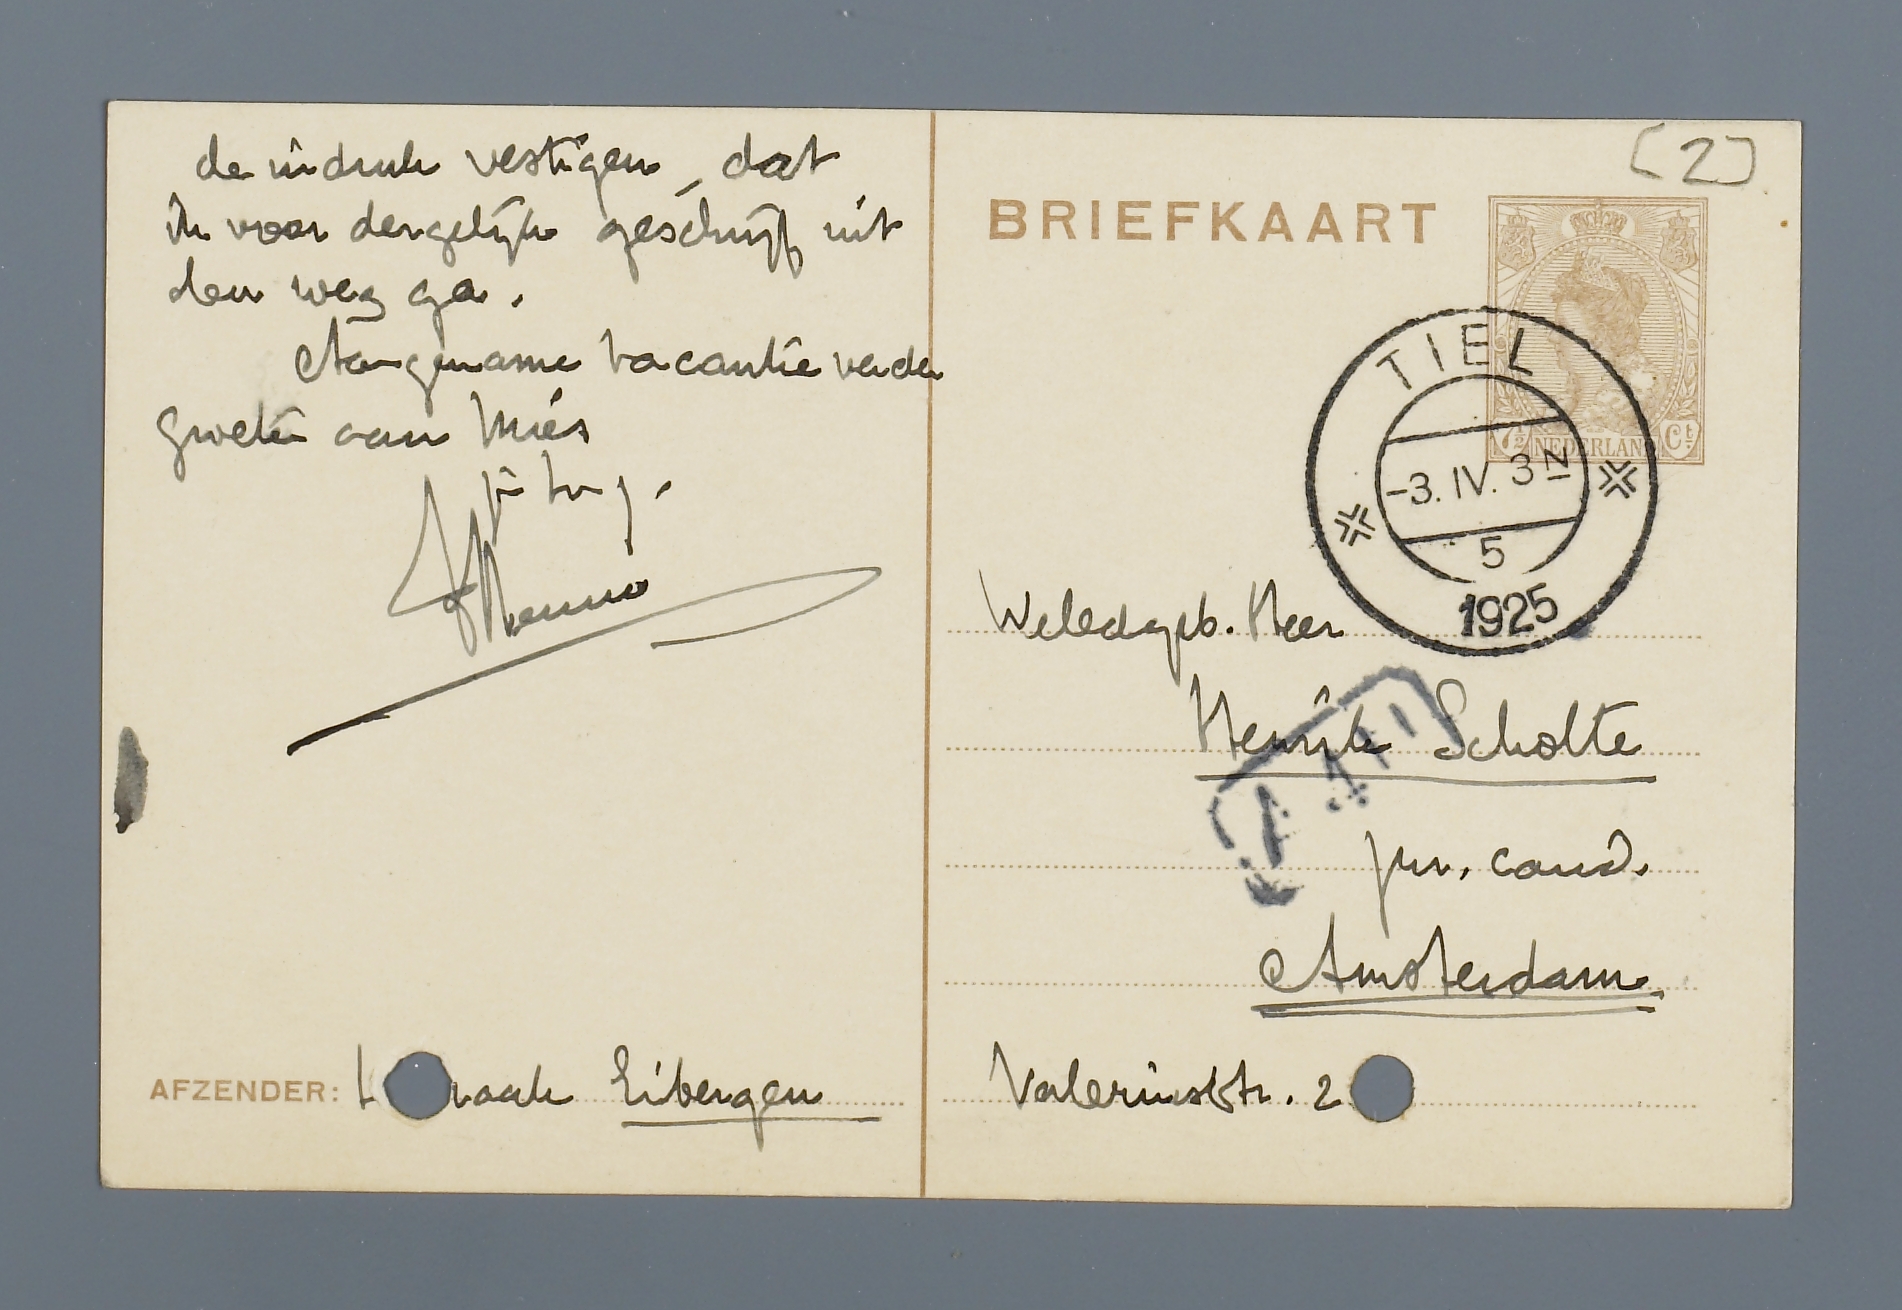 de indruk vestigen, dat
ik voor dergelijk geschrijf uit
den weg ga.
Aangename vacantie verder
groeten aan Mies
t.à.v.
Menno
AFZENDER: braak Eibergen
[2]
BRIEFKAART
7½ NEDERLAND Ct
TIEL
-3.IV.3N
5
1925
Weledgeb. Heer
Henrik Scholte
jur. cand.
Amsterdam
Valeriusstr. 2